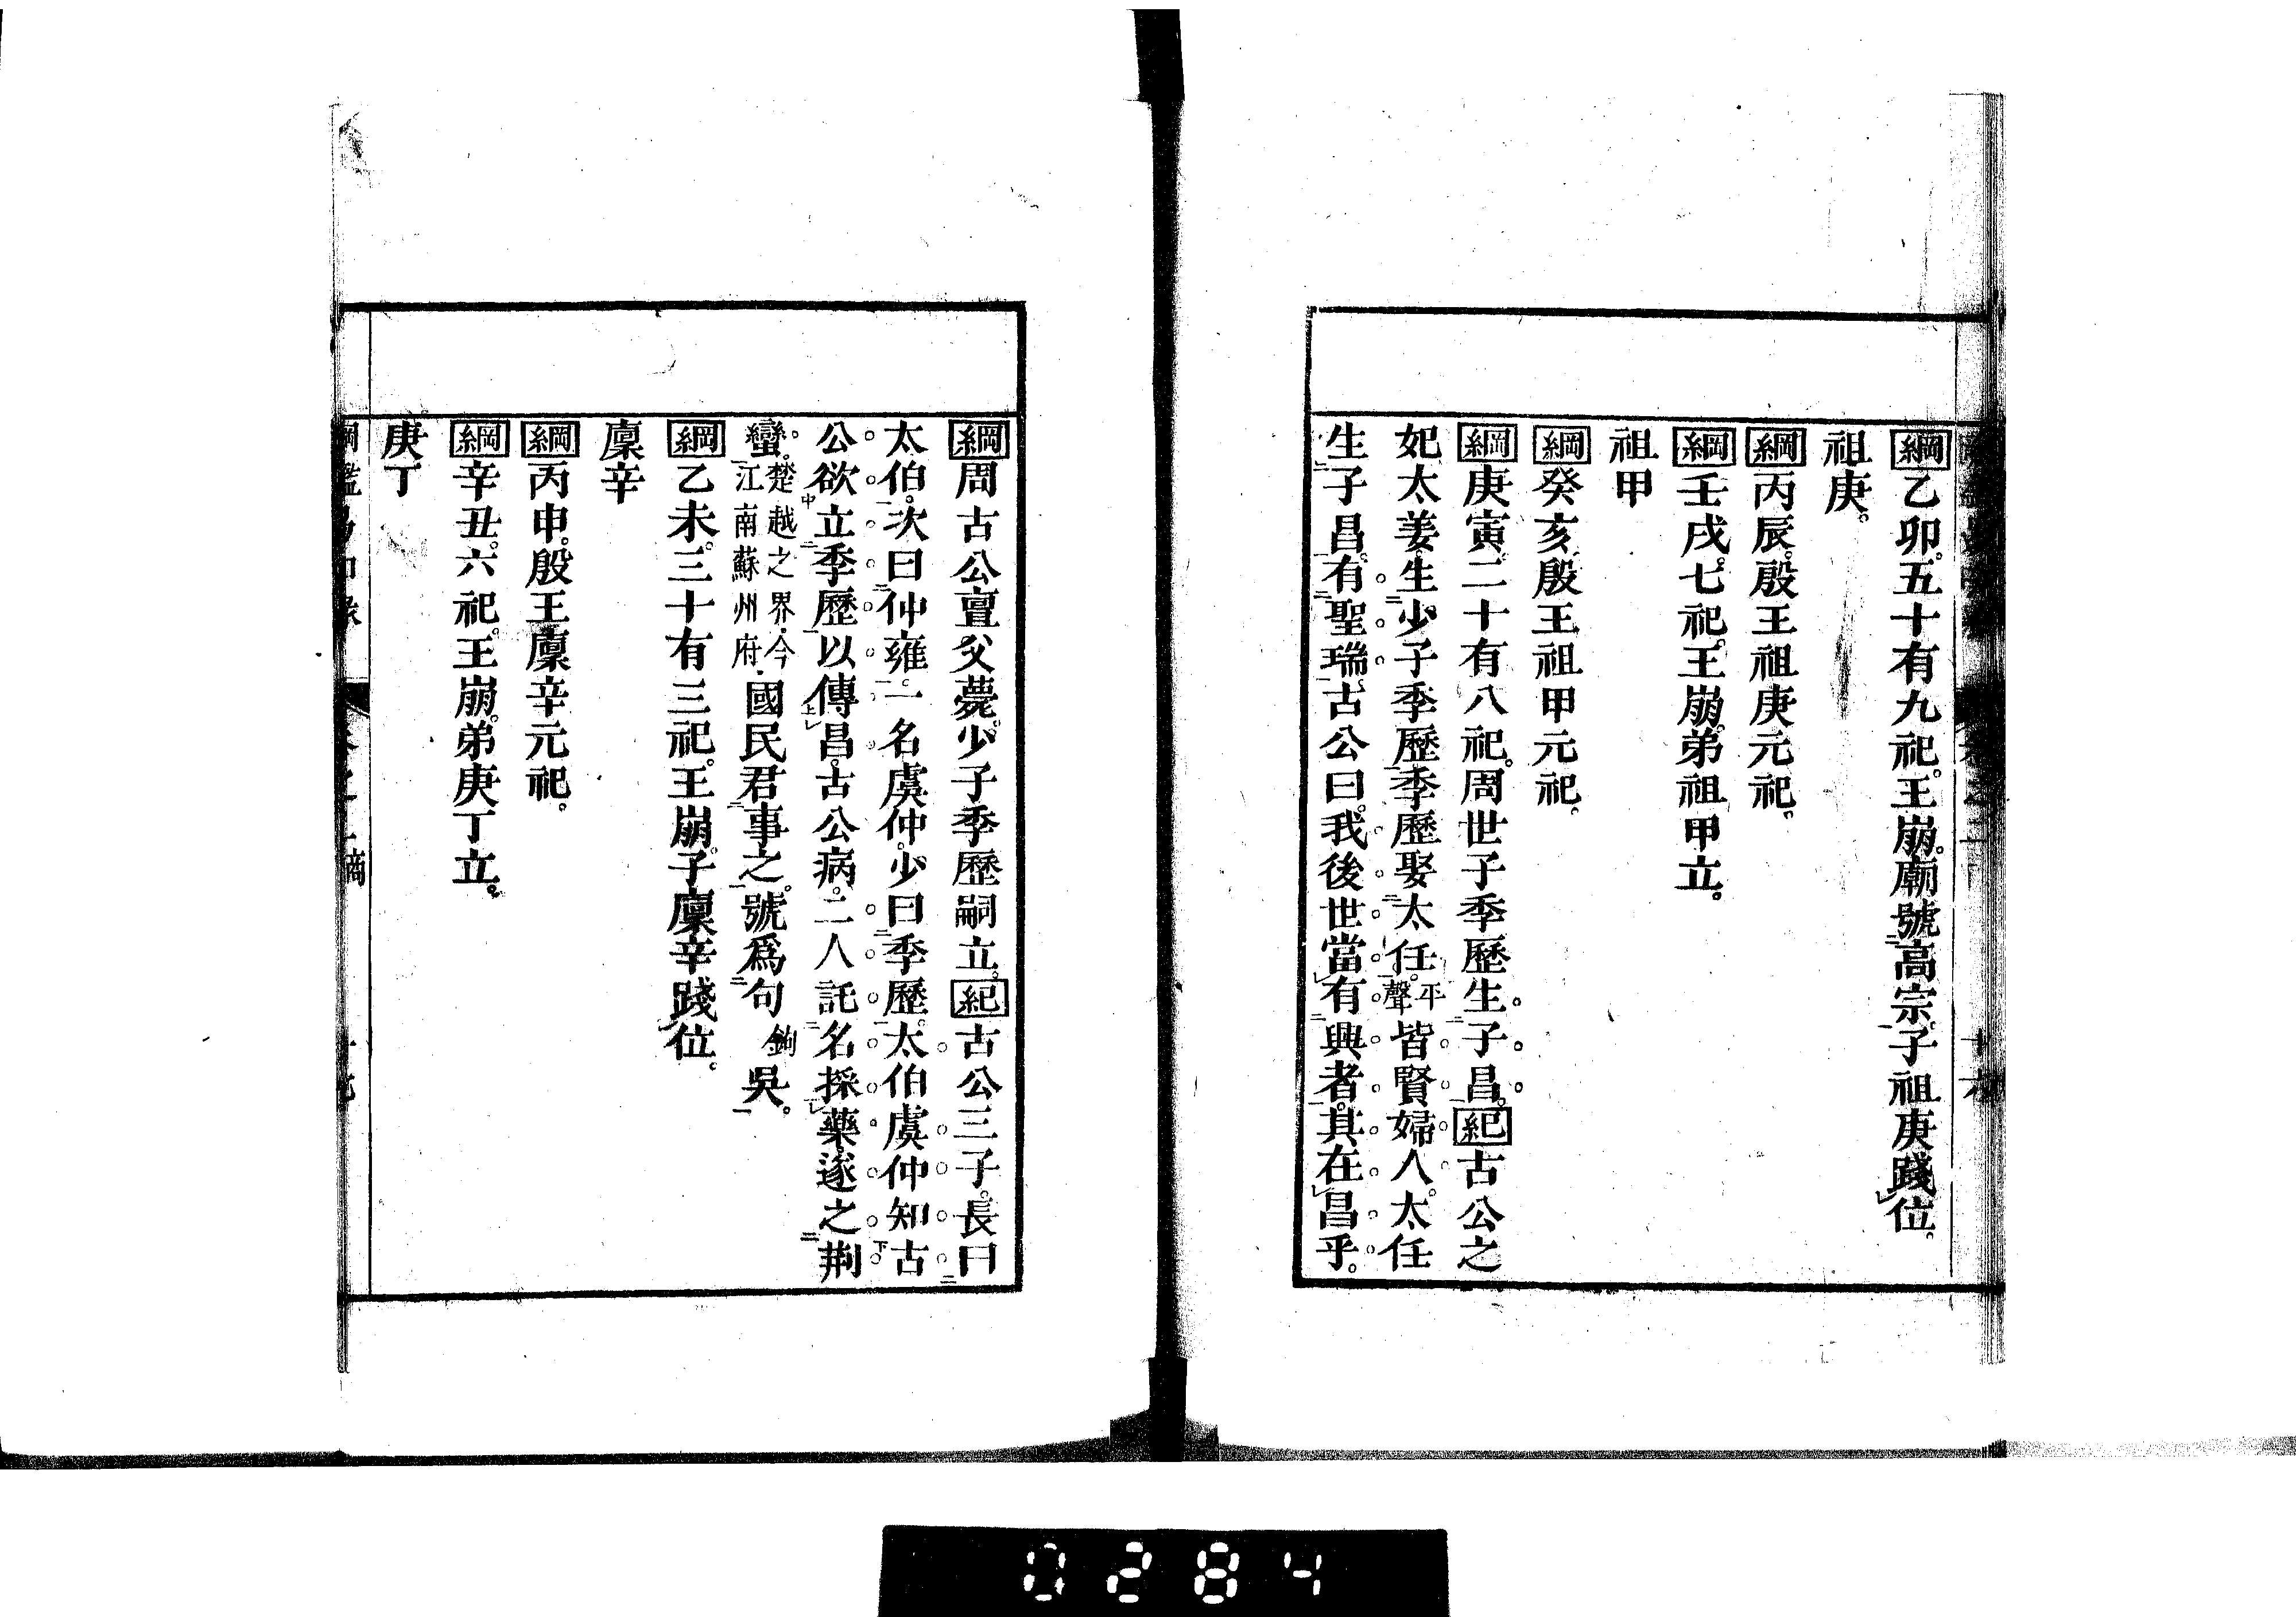 綱乙卯。五十有九祀。王崩。廟號高宗。子祖庚踐位。
祖庚。
綱丙辰。殷王祖庚元祀。
綱壬戌。七祀。王崩。弟祖甲立。
祖甲
綱癸亥。殷王祖甲元祀。
綱庚寅。二十有八祀。周世子季歷生子昌。紀古公之
妃太姜。生少子季歷。季歷娶太任。平聲皆賢婦人。太任
生子昌。有聖瑞。古公曰。我後世當有興者。其在昌乎。
綱周古公亶父薨。少子季歷嗣立。紀古公三子。長曰
太伯。次曰仲雍。一名虞仲。少曰季歷。太伯虞仲知古
公欲立季歷以傳昌。古公病。二人託名採藥。遂之荆
蠻。楚越之界。今江南蘇州府。國民君事之。號爲句鉤吳。
綱乙未。三十有三祀。王崩。子廩辛踐位。
廩辛
綱丙申。殷王廩辛元祀。
綱辛丑。六祀。王崩。弟庚丁立。
庚丁
商
0284